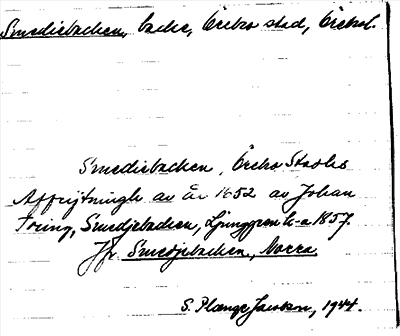 Smediebacken, backe, Örebro stad, Örebrol.
Smediebacken, Örebro Stadhs
Affrijtningh av år 1652 av Johan
Tring, Smedjebacken, Ljunggren k-a 1857.
Jfr Smedjebacken, Norra.
S. Plænge Jacobson, 1944.